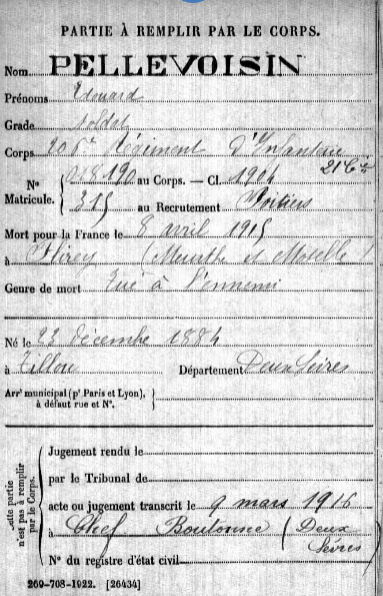 PARTIE À REMPLIR PAR LE CORPS.
Nom PELLEVOISIN
Prénoms Edouard
Grade soldat
Corps 206e Régiment d'Infanterie
21e Cie
N° 018190 au Corps. — Cl. 1904
Matricule. 315 au Recrutement Poitiers
Mort pour la France le 8 avril 1915
à Flirey (Meurthe et Moselle)
Genre de mort Tué à l'ennemi
Né le 23 décembre 1884
à Tillou Département Deux Sèvres
Arrt municipal (pr Paris et Lyon),
à défaut rue et N°.
Cette partie
n'est pas à remplir
par le Corps.
Jugement rendu le
par le Tribunal de
acte ou jugement transcrit le 9 mars 1916
à Chef Boutonne (Deux
Sèvres
N° du registre d'état civil
269-708-1922. [26434]